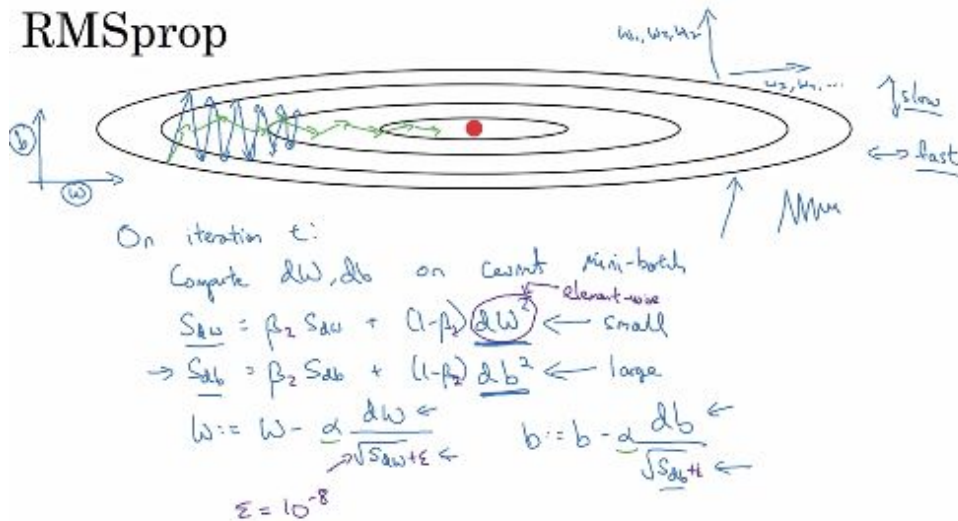 RMSprop
w₁, w₂, w₂
w₃, w₄, ...
slow
fast
b
w
On iteration t:
Compute dW, db on current mini-batch
element-wise
S_dw = β₂ S_dw + (1-β₂) dW² ← small
→ S_db = β₂ S_db + (1-β₂) db² ← large
W := W - α dW ← / √S_dw + ε ← b := b - α db ← / √S_db + ε ←
ε = 10⁻⁸